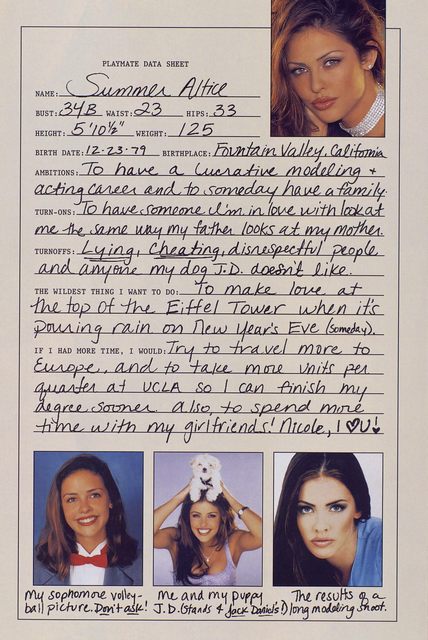 PLAYMATE DATA SHEET
NAME: Summer Altice
BUST: 34B WAIST: 23 HIPS: 33
HEIGHT: 5'10½" WEIGHT: 125
BIRTH DATE: 12-23-79 BIRTHPLACE: Fountain Valley, California
AMBITIONS: To have a lucrative modeling +
acting career and to someday have a family.
TURN-ONS: To have someone I'm in love with look at
me the same way my father looks at my mother.
TURNOFFS: Lying, Cheating, disrespectful people,
and anyone my dog J.D. doesn't like.
THE WILDEST THING I WANT TO DO: To make love at
the top of the Eiffel Tower when it's
pouring rain on New Year's Eve (someday).
IF I HAD MORE TIME, I WOULD: Try to travel more to
Europe, and to take more units per
quarter at UCLA so I can finish my
degree sooner. Also, to spend more
time with my girlfriends! Nicole, I ♥ U!
My sophomore volley-
ball picture. Don't ask!
Me and my puppy
J.D. (Stands 4 Jack Daniels!)
The results of a
long modeling shoot.